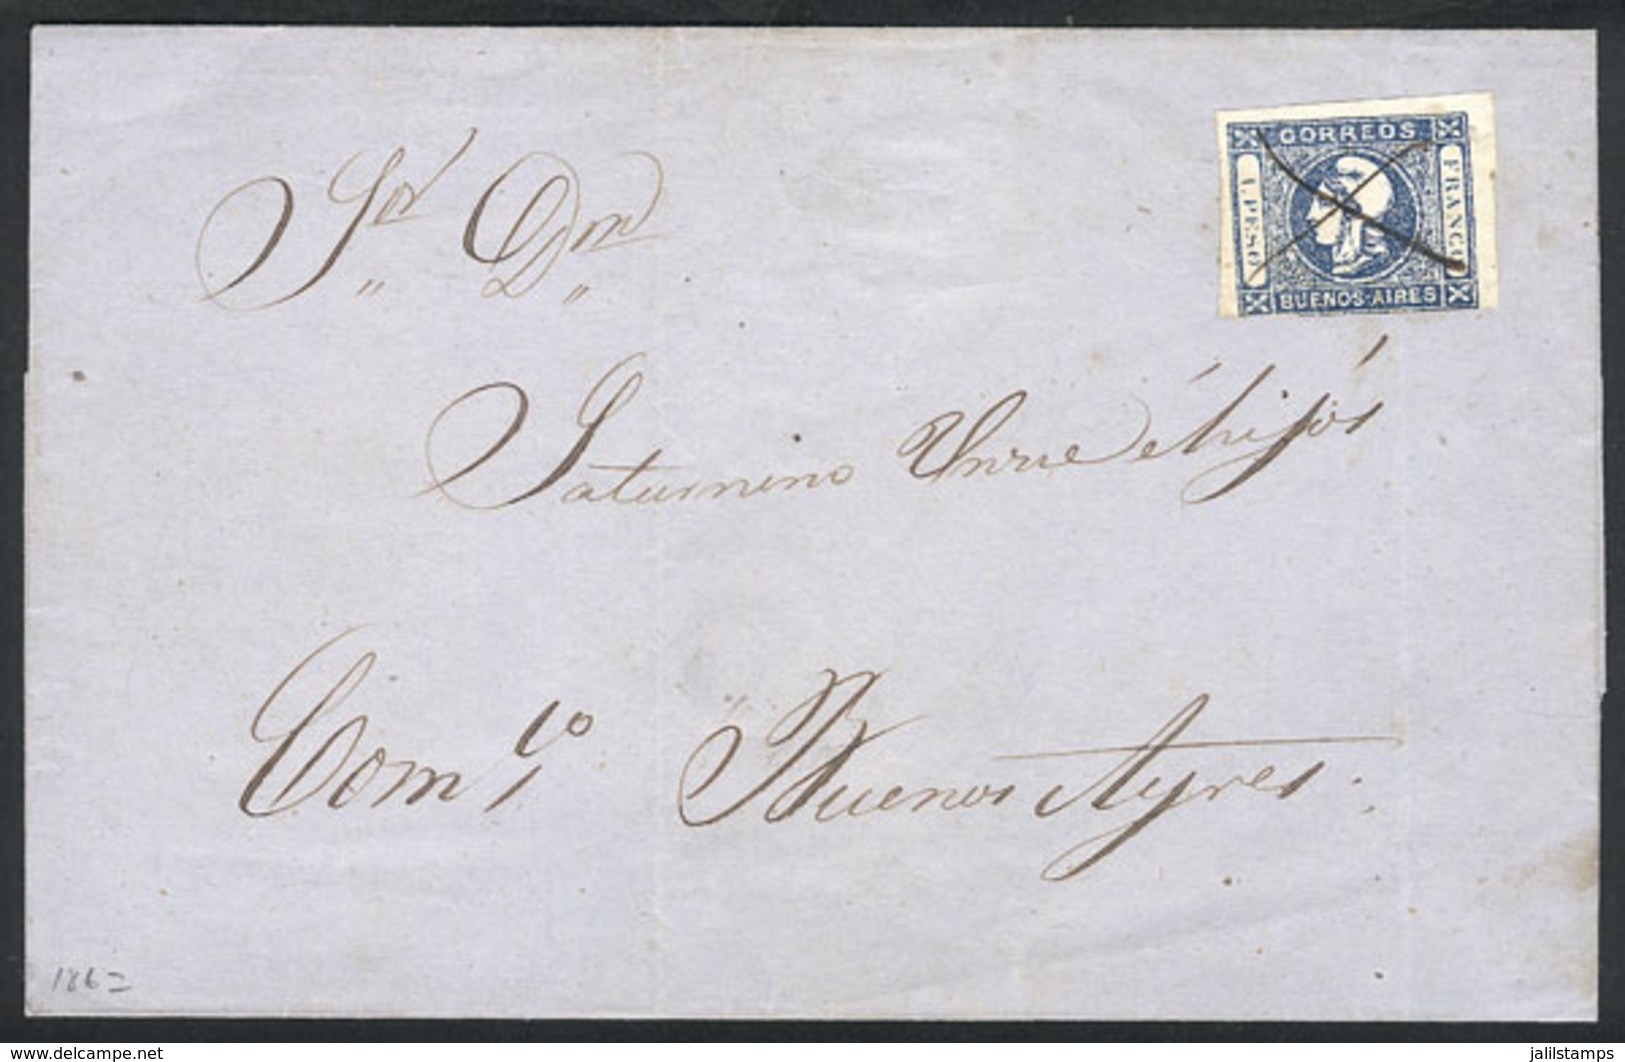 CORREOS
1.PESO
FRANCO
BUENOS-AIRES
Sor Dn
Saturnino Unzue é hijos
Com 1o Buenos Ayres.
1862
delcampe.net
jalilstamps